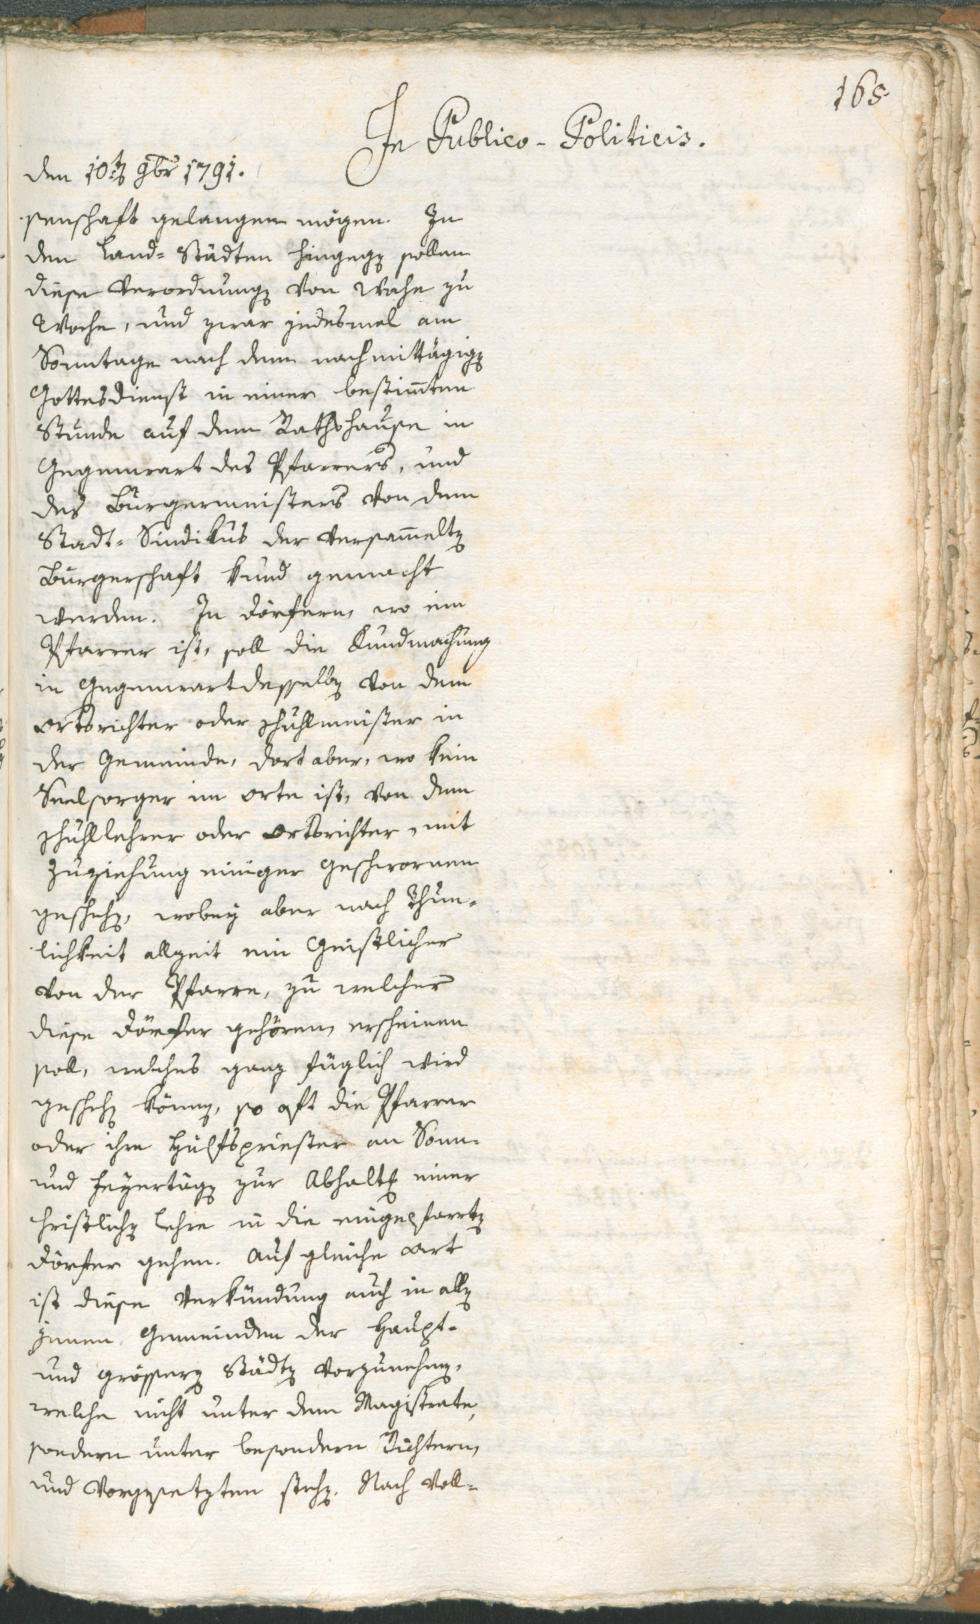 165.
In Publico-Politicis.
den 10t 9br 1791.
senschaft gelangen mögen. In
den Land-Städten hingegen sollen
diese Verordnungen von Woche zu
Woche, und zwar jedesmal am
Sonntage nach dem nachmittägigen
Gottesdienst in einer bestimten
Stunde auf dem Rathshause in
Gegenwart des Pfarrers, und
des Bürgermeisters von dem
Stadt-Sindikus der versammelten
Bürgerschaft kund gemacht
werden. In Dörfern, wo ein
Pfarrer ist, soll die Kundmachung
in Gegenwart desselben von dem
Ortsrichter oder Schulmeister in
der Gemeinde, dort aber, wo kein
Seelsorger im Orte ist, von dem
Schullehrer oder Ortsrichter, mit
Zuziehung einiger Geschwornen
geschehen, wobey aber nach Thun-
lichkeit allzeit ein Geistlicher
von der Pfarre, zu welcher
diese Dörfer gehören, erscheinen
soll, welches ganz füglich wird
geschehen können, so oft die Pfarrer
oder ihre Hülfspriester an Sonn-
und Feyertägen zur Abhaltung einer
christlichen Lehre in die eingepfarrten
Dörfer gehen. Auf gleiche Art
ist diese Verkündung auch in allen
jenen Gemeinden der Haupt-
und grösseren Städten vorzunehmen,
welche nicht unter dem Magistrate,
sondern unter besondern Richtern,
und Vorgesetzten stehen. Nach Voll-